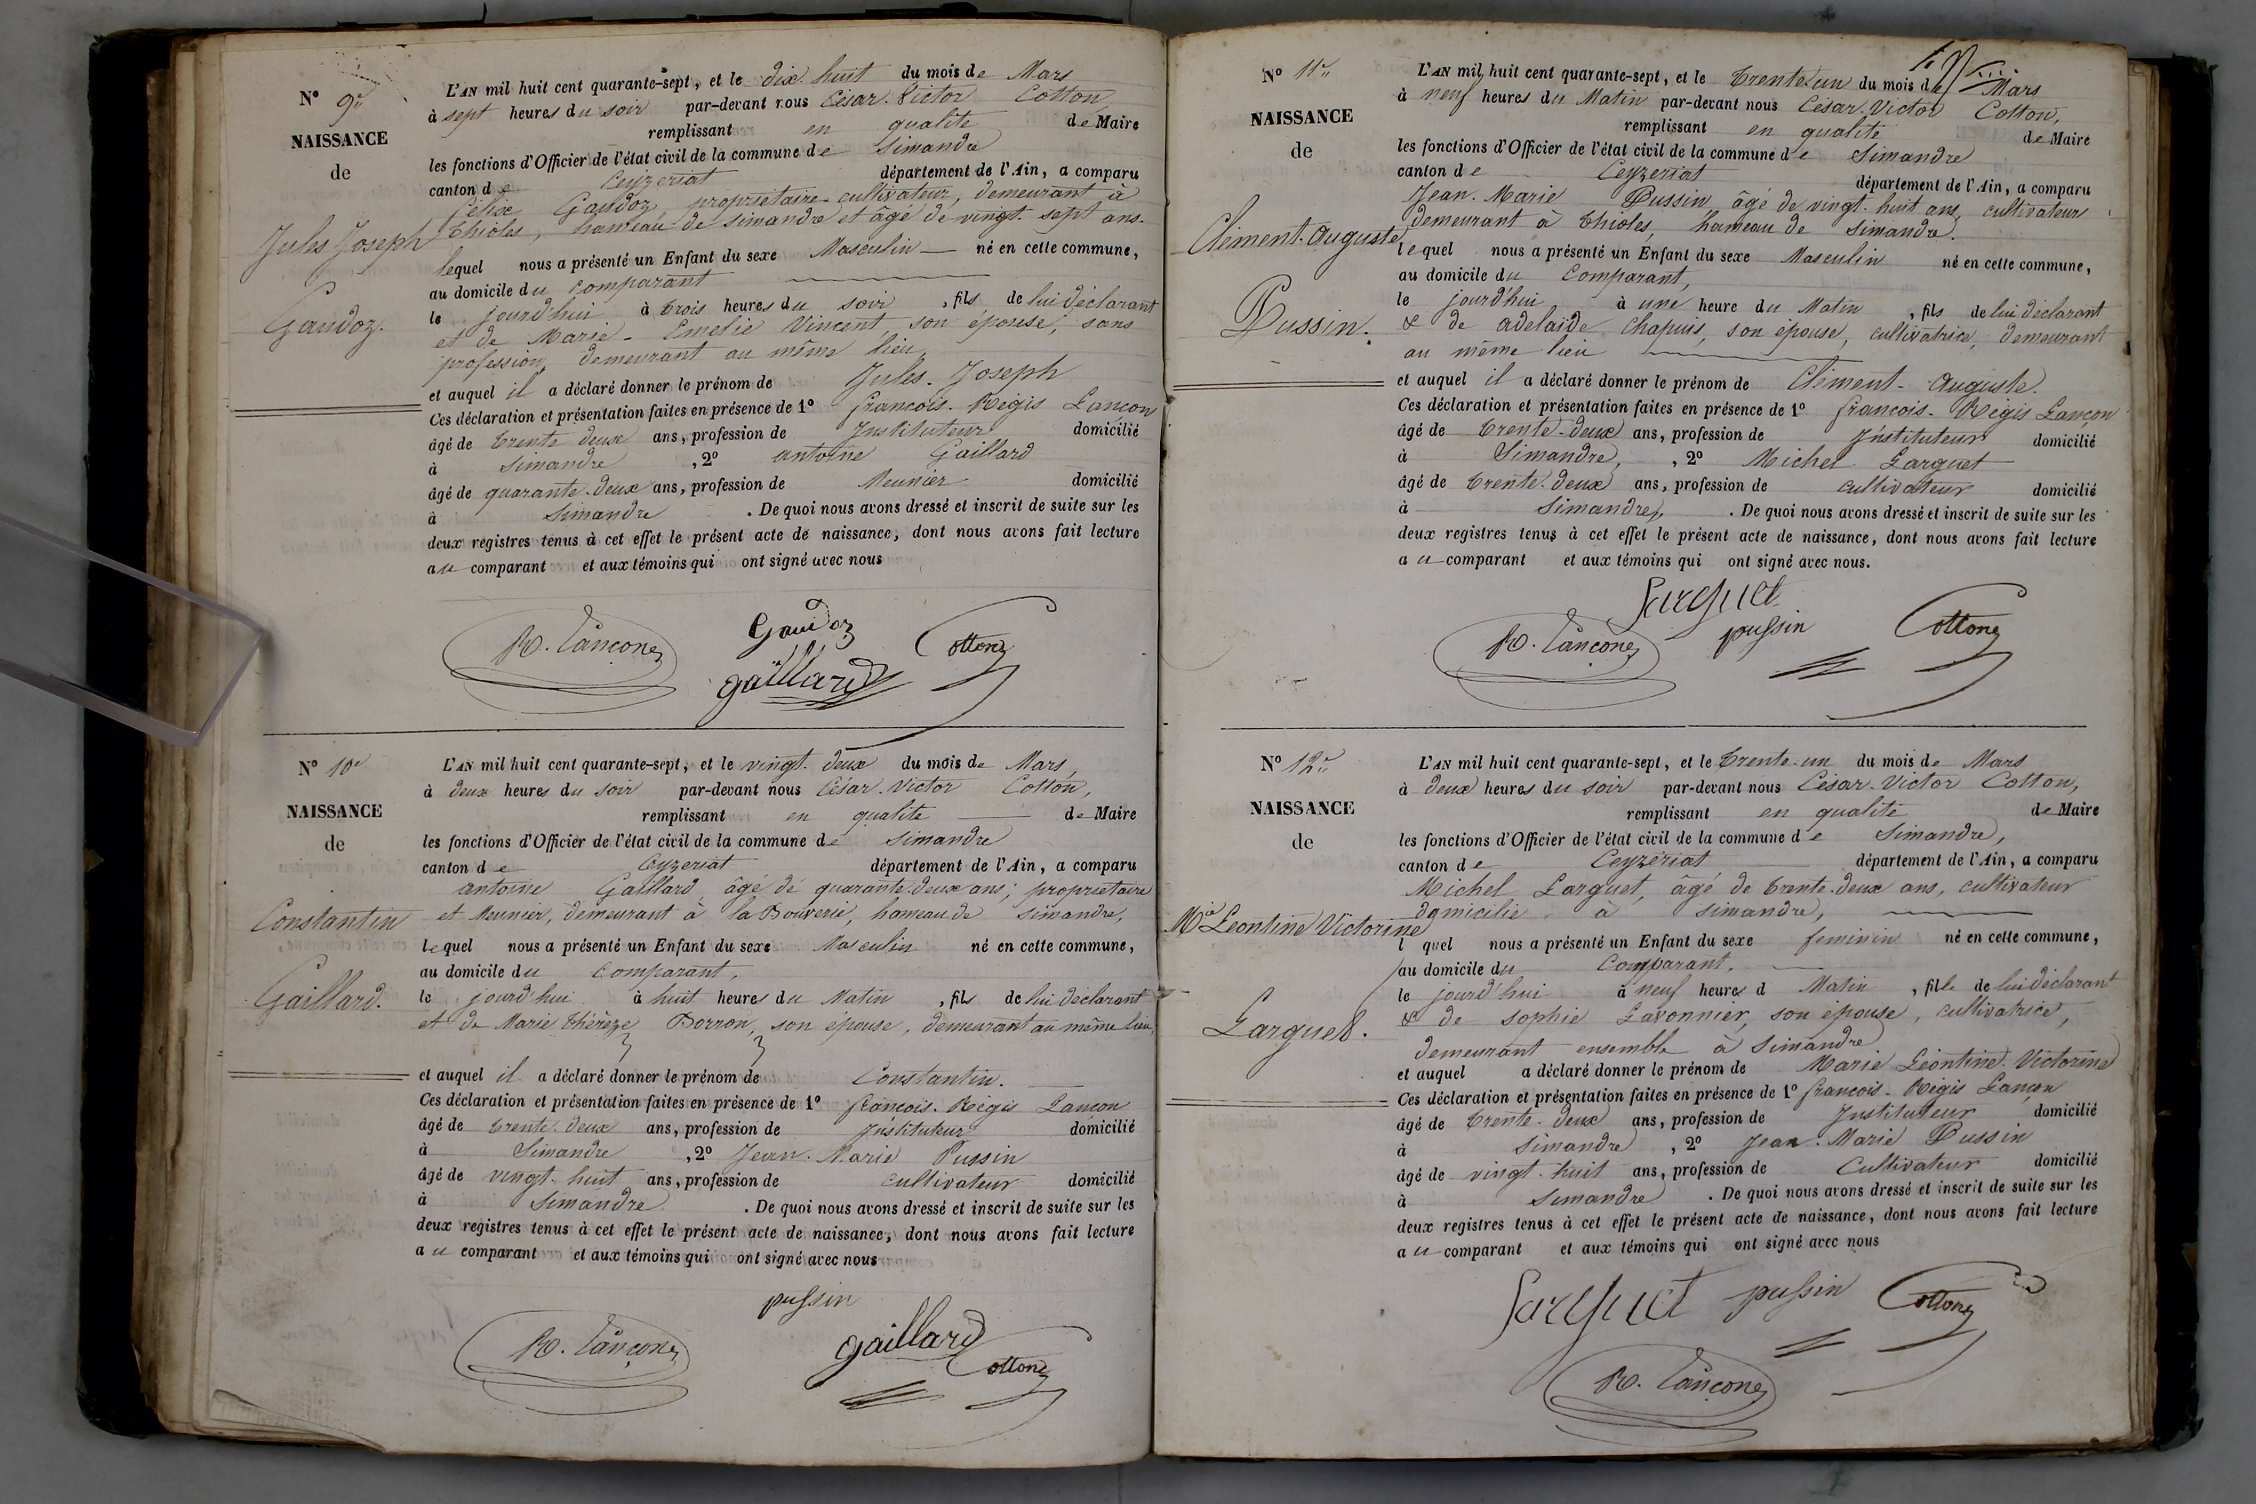 N° 9e
NAISSANCE
de
Jules Joseph
Gaudoz.
L'AN mil huit cent quarante-sept, et le dix-huit du mois de Mars
à sept heures du soir par-devant nous César-Victor Cotton,
remplissant en qualité de Maire
les fonctions d'Officier de l'état civil de la commune de Simandre
canton de Ceyzeriat département de l'Ain, a comparu
Félix Gaudoz, propriétaire-cultivateur, demeurant à
Thioles, hameau de Simandre et âgé de vingt-sept ans.
lequel nous a présenté un Enfant du sexe Masculin né en cette commune,
au domicile du comparant
le jourd'hui à trois heures du soir, fils de lui déclarant
et de Marie-Emelie Vincent, son épouse, sans
profession, demeurant au même lieu,
et auquel il a déclaré donner le prénom de Jules-Joseph
Ces déclaration et présentation faites en présence de 1° françois-Régis Lançon
âgé de trente deux ans, profession de Instituteur domicilié
à Simandre, 2° antoine Gaillard
âgé de quarante-deux ans, profession de Meunier domicilié
à Simandre. De quoi nous avons dressé et inscrit de suite sur les
deux registres tenus à cet effet le présent acte de naissance, dont nous avons fait lecture
au comparant et aux témoins qui ont signé avec nous
Gaudoz
R. Lançon Cotton
gaillard
N° 10e
NAISSANCE
de
Constantin
Gaillard.
L'AN mil huit cent quarante-sept, et le vingt-deux du mois de Mars,
à deux heures du soir par-devant nous César-Victor Cotton,
remplissant en qualité de Maire
les fonctions d'Officier de l'état civil de la commune de Simandre
canton de Ceyzeriat département de l'Ain, a comparu
antoine Gaillard, âgé de quarante-deux ans, propriétaire
et Meunier, demeurant à la Bouverie, hameau de Simandre,
lequel nous a présenté un Enfant du sexe Masculin né en cette commune,
au domicile du comparant,
le jourd'hui à huit heures du Matin, fils de lui déclarant
et de Marie thérèze Borron, son épouse, demeurant au même lieu,
et auquel il a déclaré donner le prénom de Constantin.
Ces déclaration et présentation faites en présence de 1° françois-Régis Lançon
âgé de trente-deux ans, profession de Instituteur domicilié
à Simandre, 2° Jean-Marie Pussin
âgé de vingt-huit ans, profession de cultivateur domicilié
à Simandre. De quoi nous avons dressé et inscrit de suite sur les
deux registres tenus à cet effet le présent acte de naissance, dont nous avons fait lecture
au comparant et aux témoins qui ont signé avec nous
pussin
R. Lançon gaillard
Cotton
N° 11e
NAISSANCE
de
Clément-Auguste
Pussin.
L'AN mil huit cent quarante-sept, et le trente-un du mois de Mars
à neuf heures du Matin par-devant nous César-Victor Cotton,
remplissant en qualité de Maire
les fonctions d'Officier de l'état civil de la commune de Simandre
canton de Ceyzeriat département de l'Ain, a comparu
Jean-Marie Pussin âgé de vingt-huit ans, cultivateur
demeurant à Thioles, hameau de Simandre.
lequel nous a présenté un Enfant du sexe Masculin né en cette commune,
au domicile du Comparant,
le jourd'hui à une heure du Matin, fils de lui déclarant
& de adelaïde Chapuis, son épouse, cultivatrice, demeurant
au même lieu
et auquel il a déclaré donner le prénom de Clément-Auguste.
Ces déclaration et présentation faites en présence de 1° françois-Régis Lançon
âgé de trente-deux ans, profession de Instituteur domicilié
à Simandre, 2° Michel Larguet
âgé de trente-deux ans, profession de cultivateur domicilié
à Simandre. De quoi nous avons dressé et inscrit de suite sur les
deux registres tenus à cet effet le présent acte de naissance, dont nous avons fait lecture
au comparant et aux témoins qui ont signé avec nous.
Larguet
R. Lançon pussin Cotton
N° 12e
NAISSANCE
de
Mie Léontine Victorine
Larguet.
L'AN mil huit cent quarante-sept, et le trente-un du mois de Mars
à deux heures du soir par-devant nous César-Victor Cotton,
remplissant en qualité de Maire
les fonctions d'Officier de l'état civil de la commune de Simandre,
canton de Ceyzériat département de l'Ain, a comparu
Michel Larguet, âgé de trente-deux ans, cultivateur
domicilié à Simandre,
l quel nous a présenté un Enfant du sexe feminin né en cette commune,
au domicile du Comparant,
le jourd'hui à neuf heures d Matin, fille de lui déclarant
& de sophie Lavonnier, son épouse, cultivatrice,
demeurant ensemble à Simandre
et auquel a déclaré donner le prénom de Marie Léontine-Victorine
Ces déclaration et présentation faites en présence de 1° françois-Régis Lançon
âgé de trente-deux ans, profession de Instituteur domicilié
à Simandre, 2° Jean-Marie Pussin
âgé de vingt-huit ans, profession de Cultivateur domicilié
à Simandre. De quoi nous avons dressé et inscrit de suite sur les
deux registres tenus à cet effet le présent acte de naissance, dont nous avons fait lecture
au comparant et aux témoins qui ont signé avec nous
Larguet pussin Cotton
R. Lançon